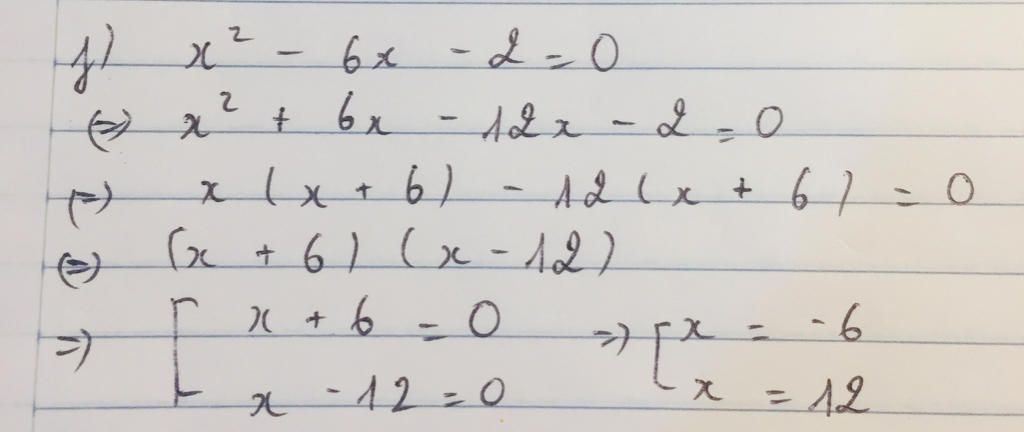 f) x² - 6x - 2 = 0
(=) x² + 6x - 12x - 2 = 0
(=) x (x + 6) - 12 (x + 6) = 0
(=) (x + 6) (x - 12)
=) [ x + 6 = 0 =) [ x = -6
x - 12 = 0 x = 12